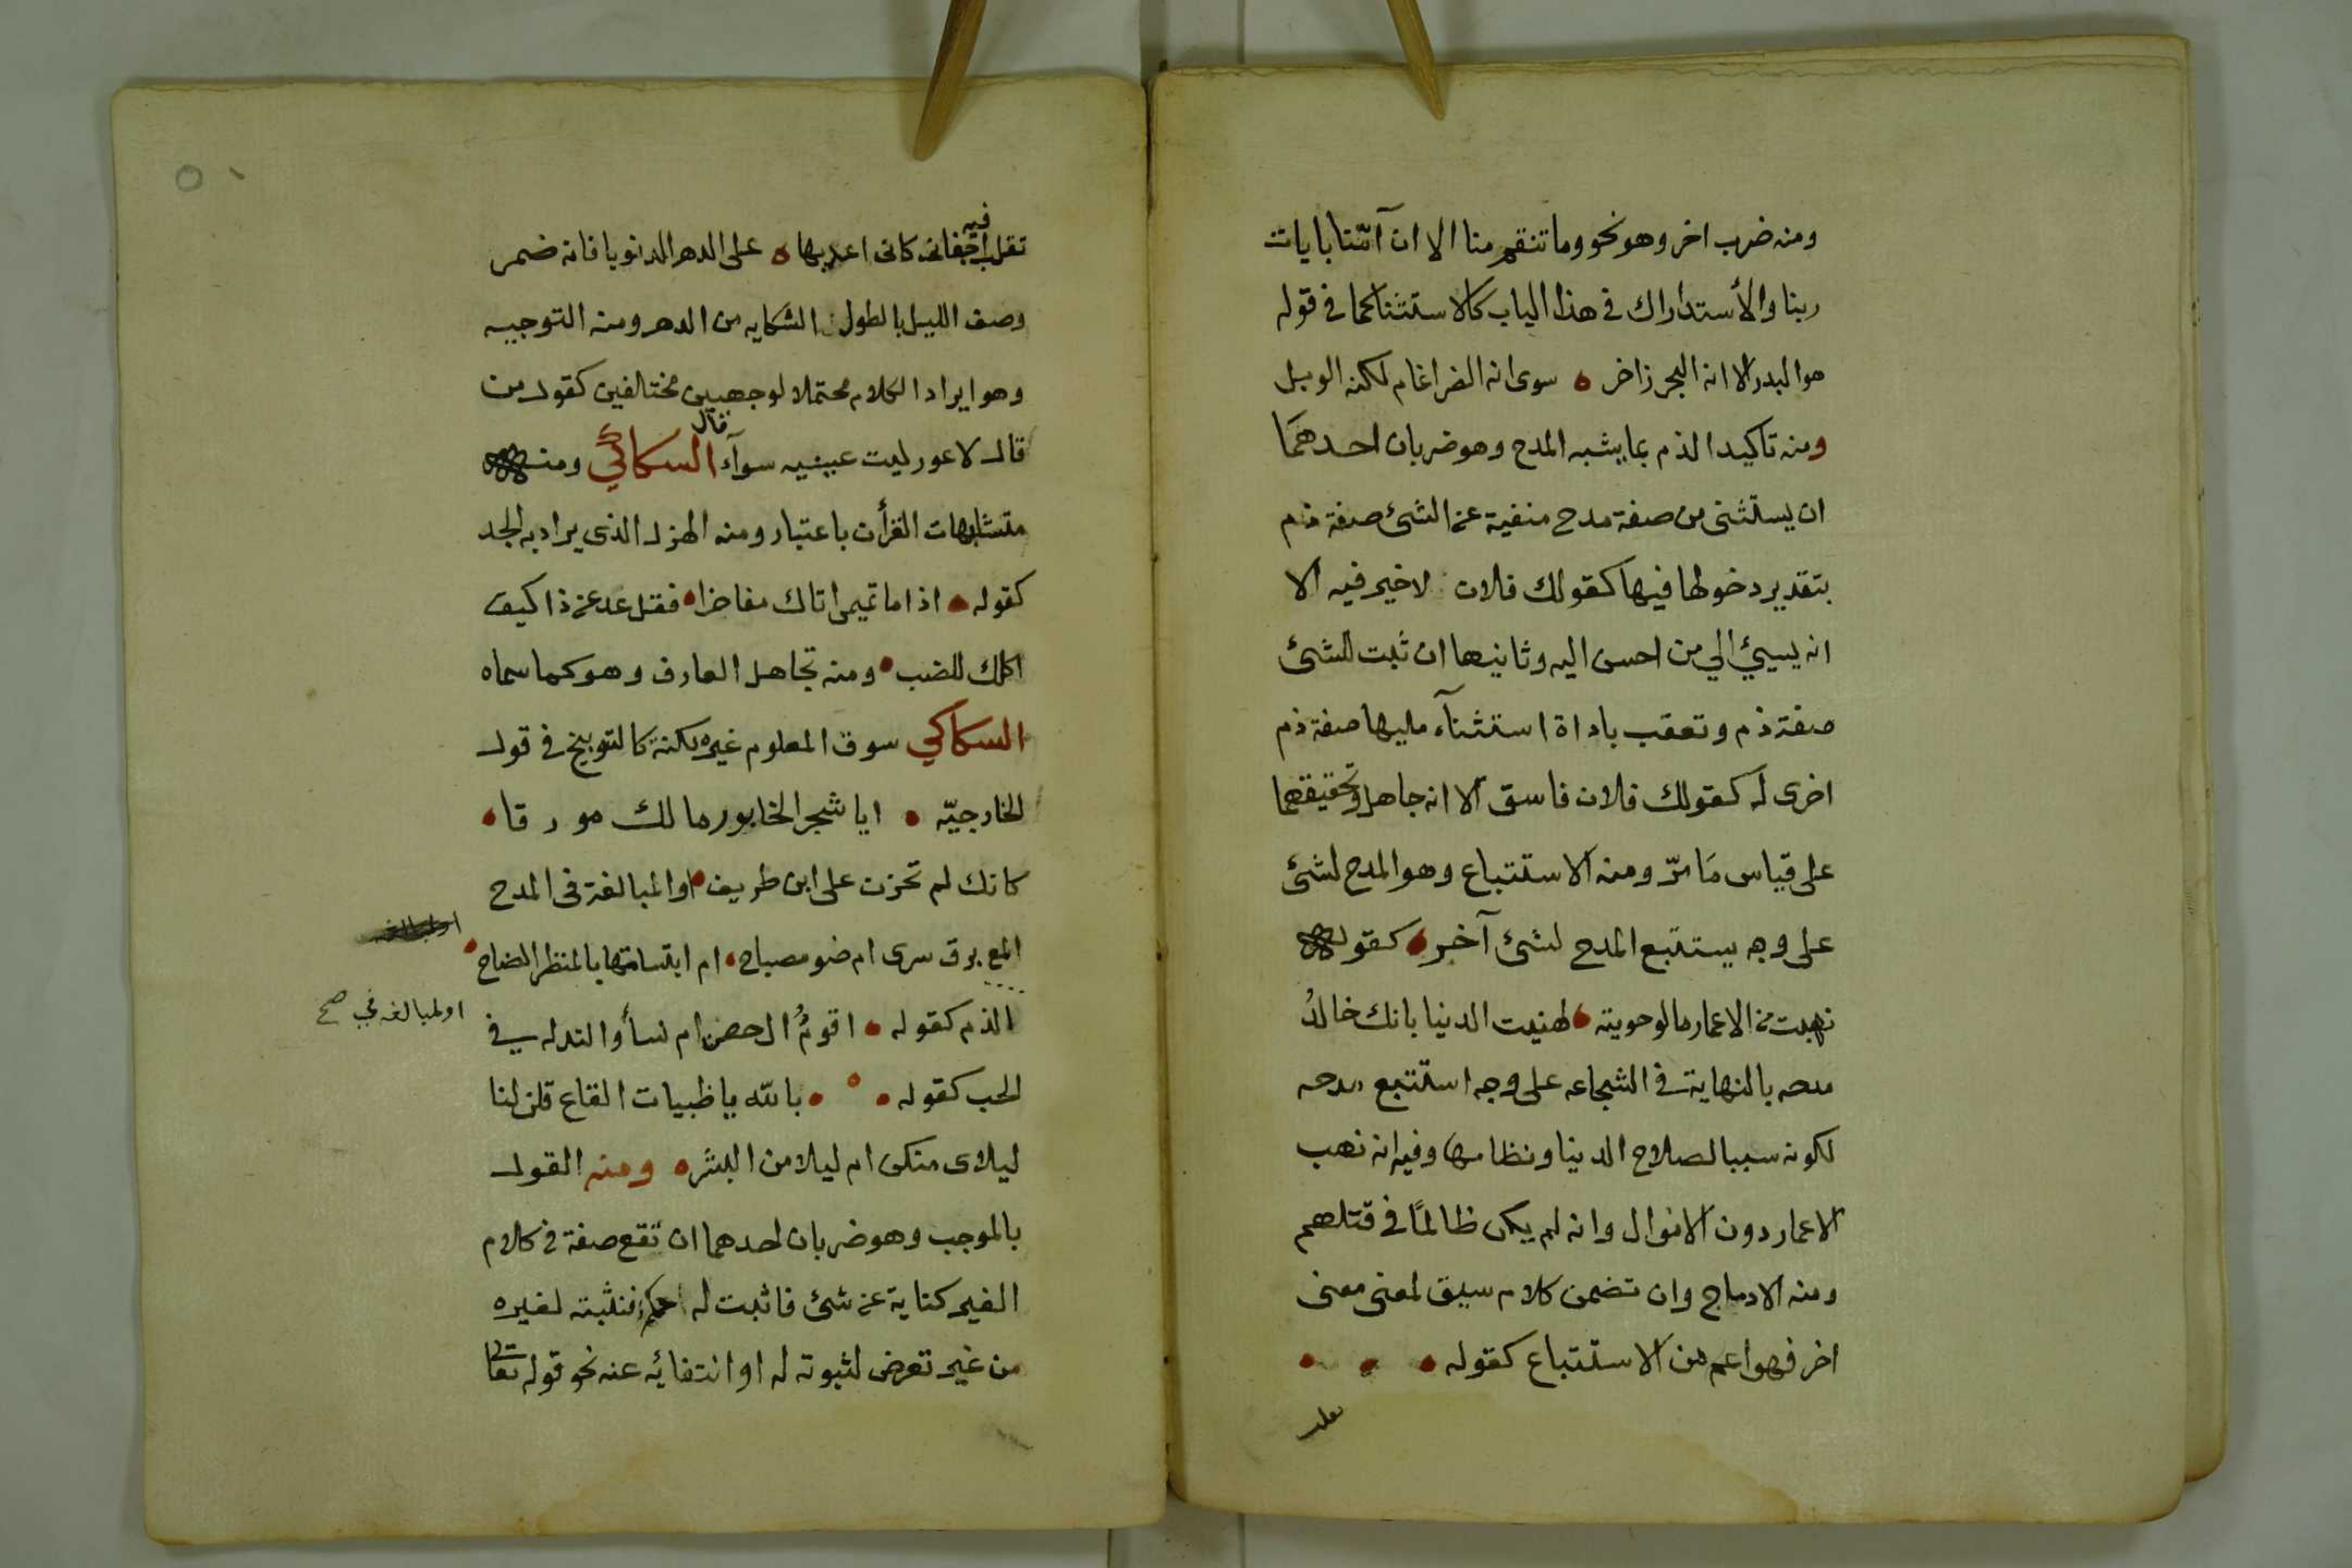 ومنه ضرب اخر وهو نحو وما تنقم منا الا ان آمنا بايات
ربنا والأستدراك في هذا الباب كالاستثنا كما في قوله
هو البدر الا انه البحر زاخر ه سوى انه الضراغام لكنه الوبل
ومنه تاكيد الذم بما يشبه المدح وهو ضربان احدهما
ان يستثنى من صفة مدح منفية عن الشئ صفة ذم
بتقدير دخولها فيها كقولك فلان لاخير فيه الا
انه يسيئ الي من احسن اليه وثانيها ان ثبت للشئ
صفة ذم وتعقب باداة استثنآء مليها صفة ذم
اخرى له كقولك فلان فاسق الا انه جاهل وتحقيقهما
على قياس مَا مرّ ومنه الاستتباع وهو المدح لشئ
على وجه يستتبع المدح لشئ آخر كقوله
نهبت من الاعمار ما لو حويته لهنيت الدنيا بانك خالدُ
مدحه بالنهاية في الشجاعه على وجه استتبع مدحه
لكونه سببا لصلاح الدنيا ونظامها وفيه انه نهب
الاعمار دون الاموال وانه لم يكن ظالمًا في قتلهم
ومنه الادماج وان تضمن كلام سيق لمعنى معنى
اخر فهو اعم من الاستتباع كقوله
تقلب
٥١
تقلب فيه اجفانى كانى اعد بها ه على الدهر الدنوبا فانه ضمر
وصف الليل بالطول الشكايه من الدهر ومنه التوجيه
وهو ايراد الكلام محتملا لوجهين مختالفين كقول من
قال لاعور ليت عينيه سوآء قال السكاكي ومنه
متشابهات القرأن باعتبار ومنه الهزل الذى يراد به الجد
كقوله اذا ما تميمى اتاك مفاخرا فقل عد عن ذا كيف
اكلك للضب ومنه تجاهل العارف وهو كما سماه
السكاكي سوق المعلوم غيره لكنة كالتوبيخ في قول
الخارجيّه ايا شجر الخابور مالك مورقا
كانك لم تحزن على ابن طريف او المبالغة فى المدح
المع برق سرى ام ضو مصباح ام ابتسامتها بالمنظر الضاح
اولمبالغه في صح
الذم كقوله اقومٌ ال حصن ام نسأ والتدله في
الحب كقوله بالله يا ظبيات القاع قلن لنا
ليلاى منكن ام ليلا من البشره ومنه القول
بالموجب وهو ضربان احدهما ان تقع صفة في كلام
الغير كناية عن شئ فاثبت له حكم فنثبته لغيره
من غير تعرض لثبوته له او انتفائه عنه نحو قوله تعا